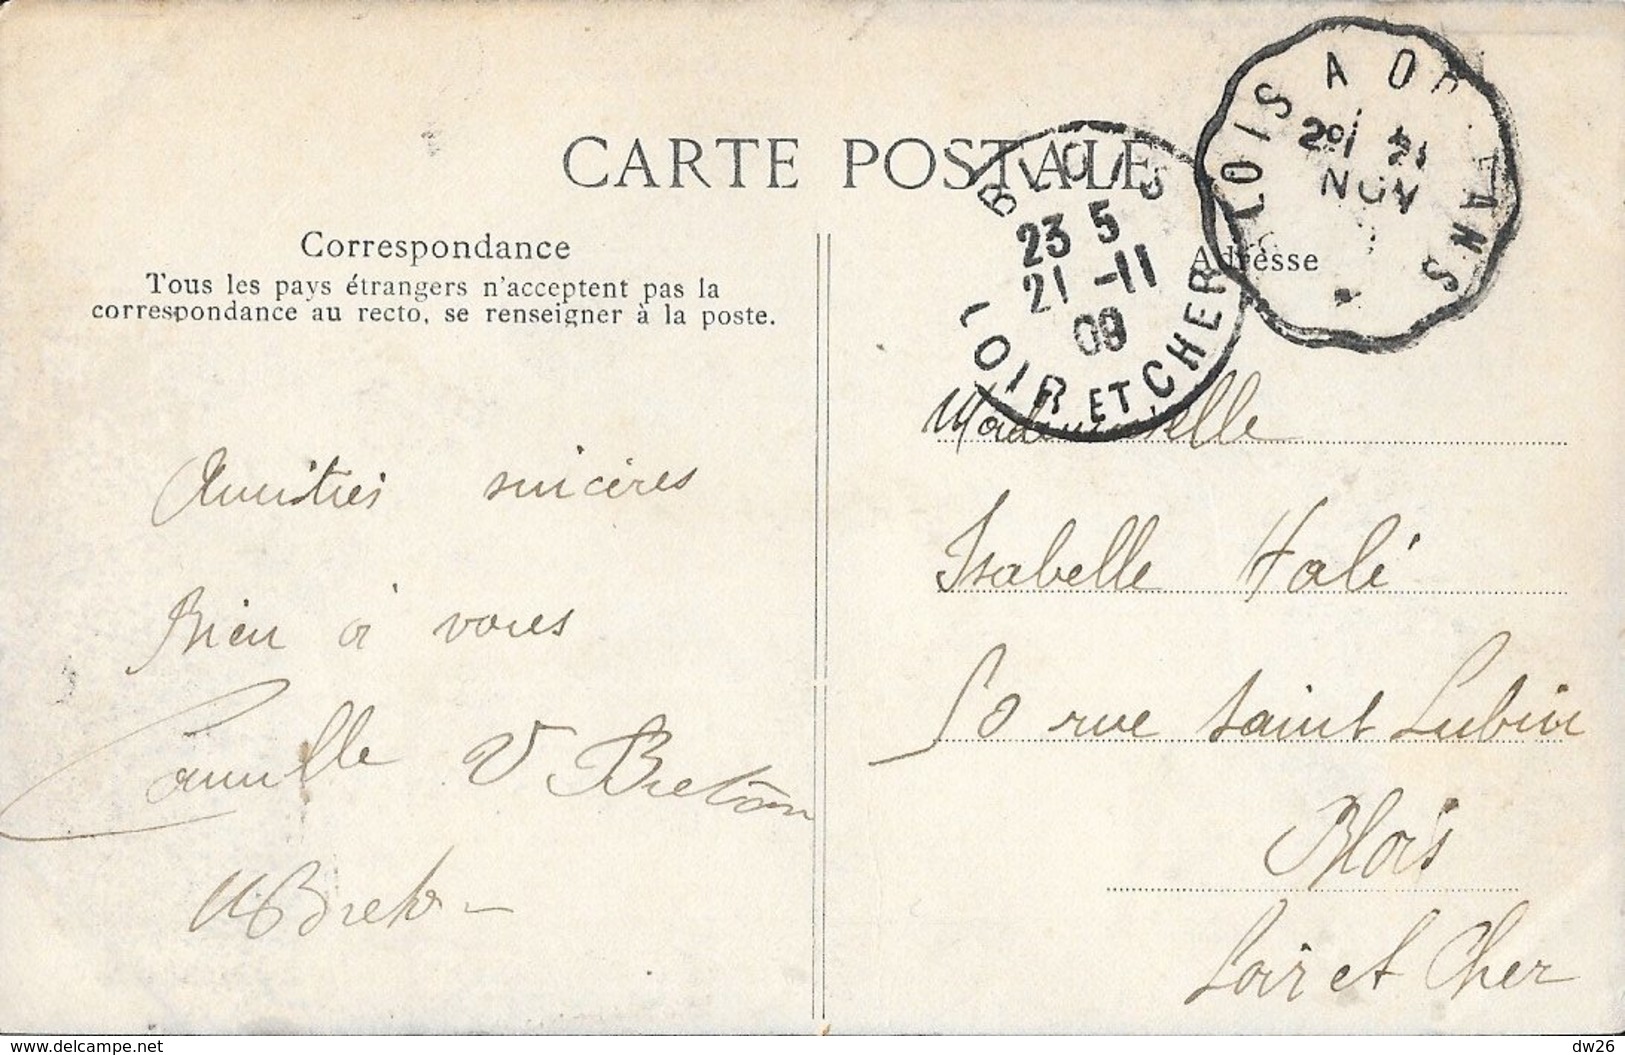 CARTE POSTALE
Correspondance
Tous les pays étrangers n'acceptent pas la
correspondance au recto, se renseigner à la poste.
Adresse
BLOIS
23 5
21 -11
09
LOIR ET CHER
BLOIS A ORLEANS
21
NOV
Amitiés sincères
Bien à vous
Camille V Breton
Breton
Mademoiselle
Isabelle Halé
50 rue Saint Lubin
Blois
Loir et Cher
www.delcampe.net
dw26